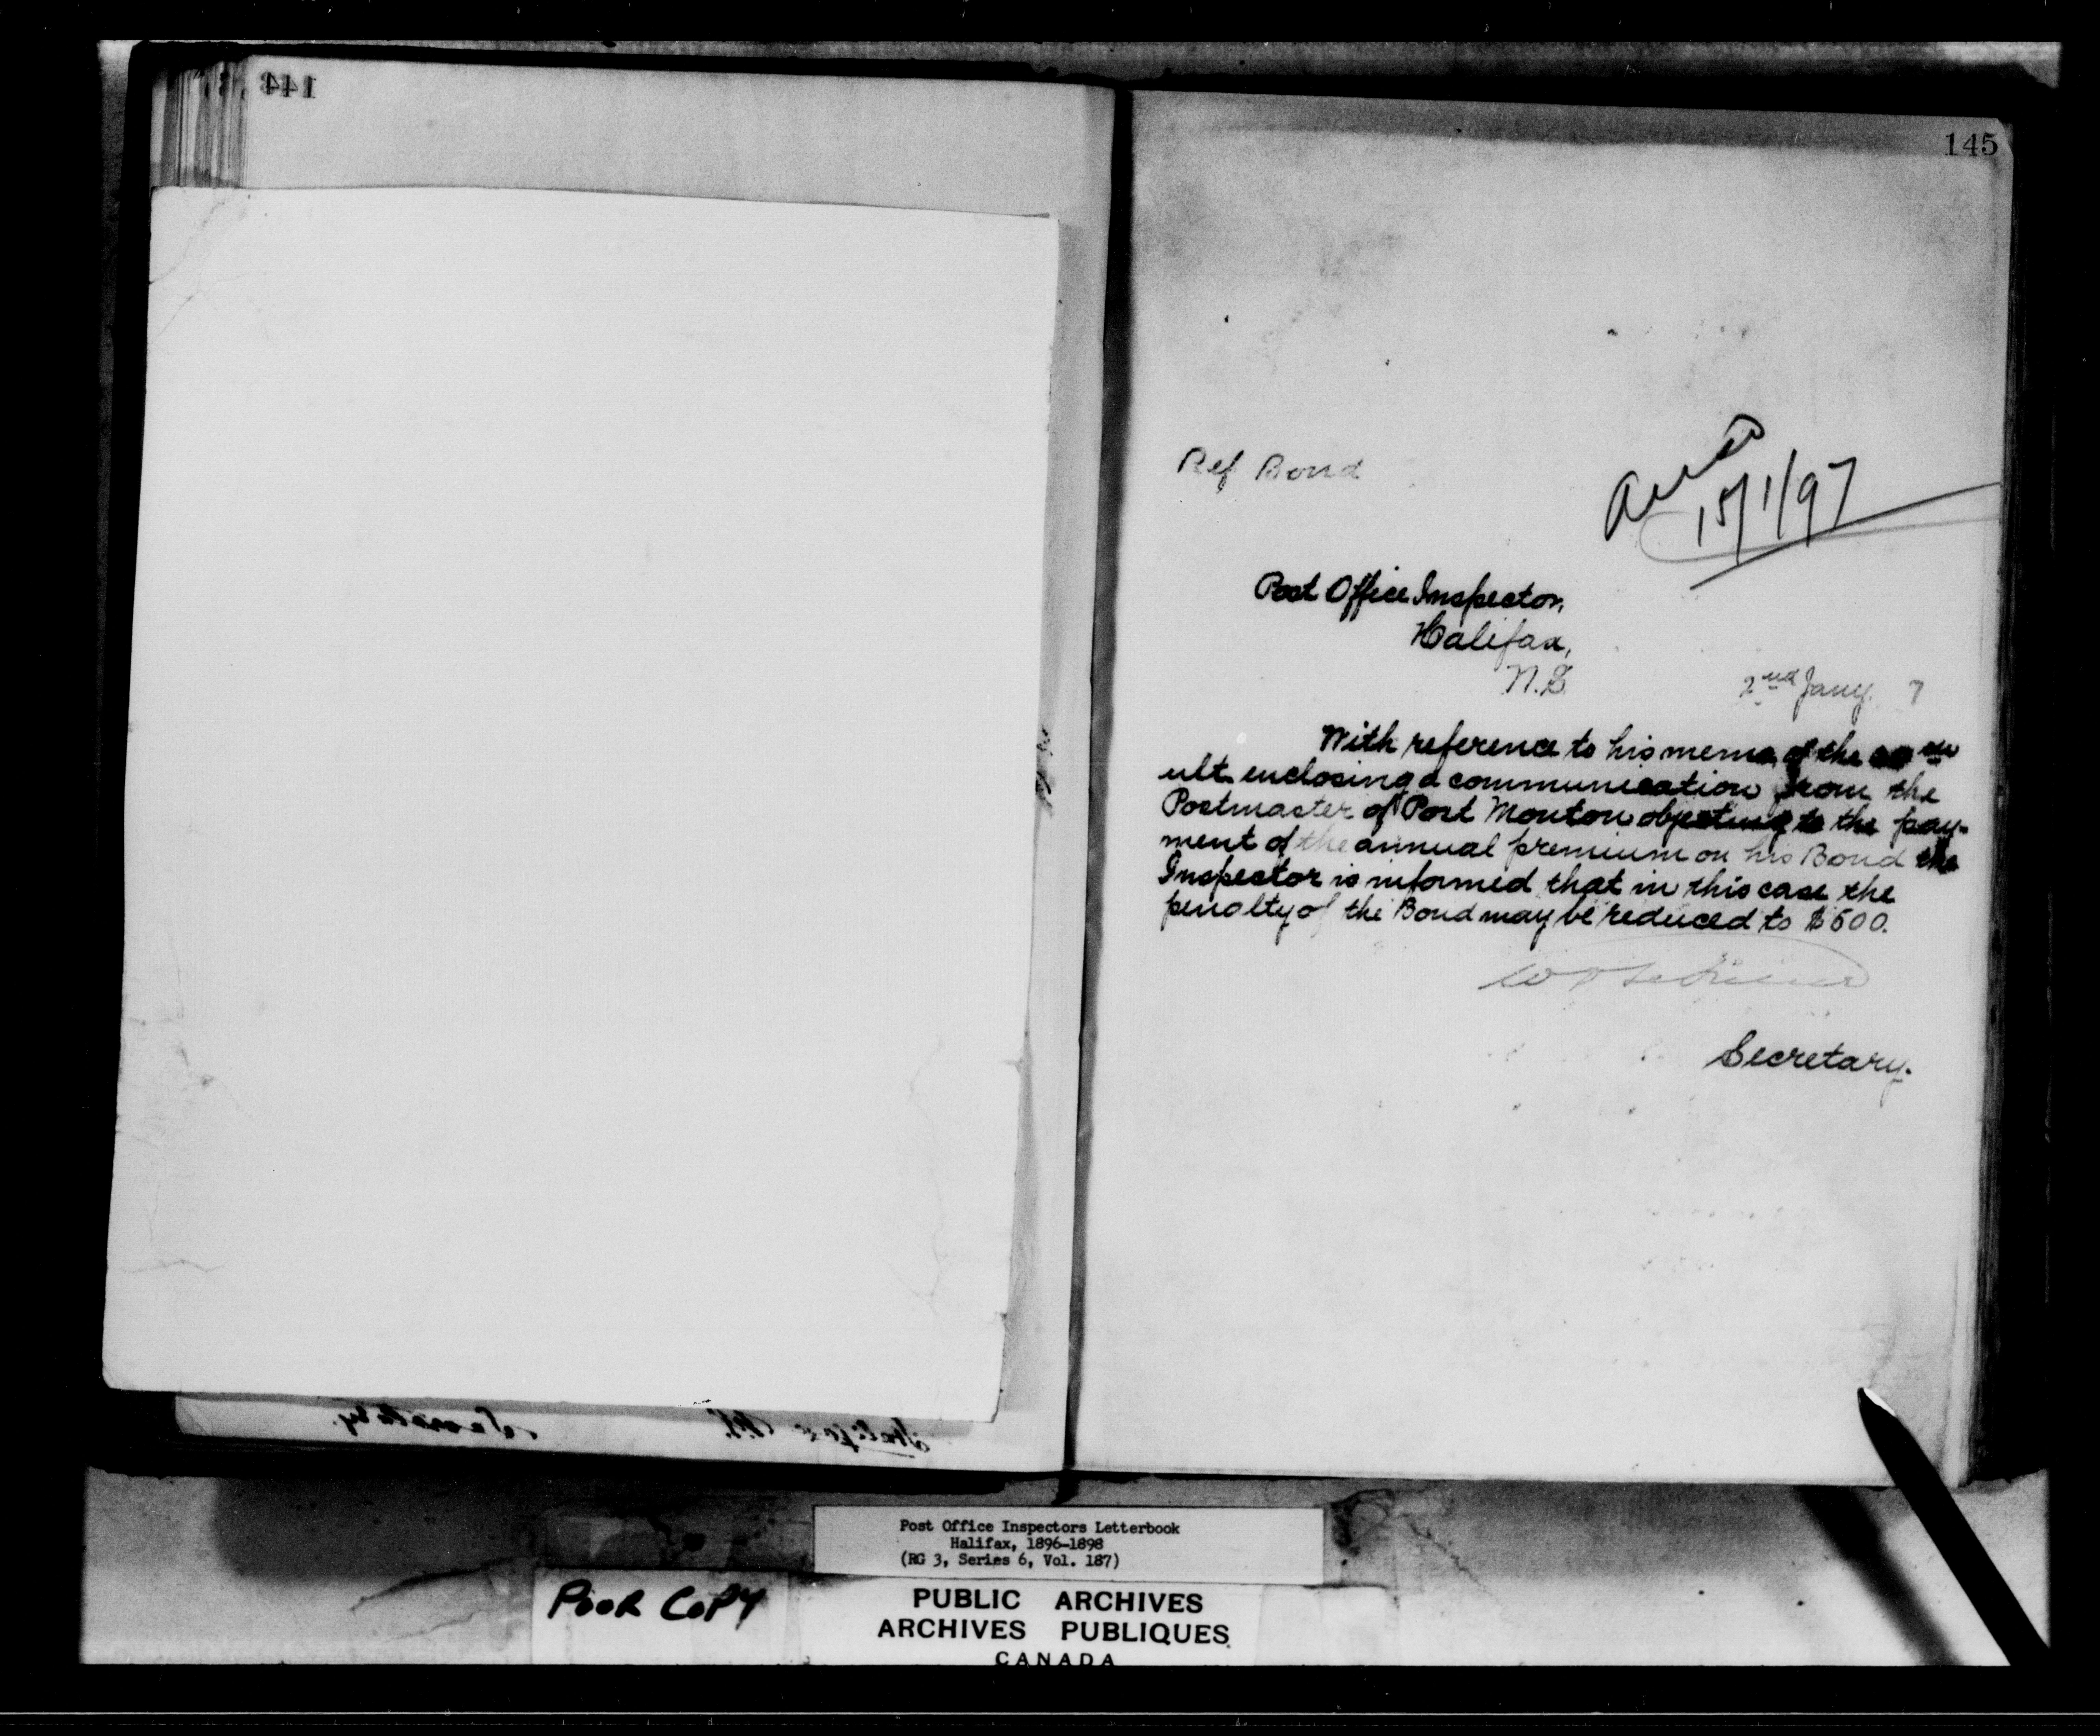 144
145
Ref Bond
15/1/97
Post Office Inspector,
Halifax,
N.S.
2nd Jany. 7
With reference to his memo. of the
ult. enclosing a communication from the
Postmaster of Port Mouton objecting to the pay-
ment of the annual premium on his Bond the
Inspector is informed that in this case the
penalty of the Bond may be reduced to $500.
Secretary.
Secretary.
Halifax N.S.
Post Office Inspectors Letterbook
Halifax, 1896-1898
(RG 3, Series 6, Vol. 187)
POOR COPY
PUBLIC ARCHIVES
ARCHIVES PUBLIQUES
CANADA